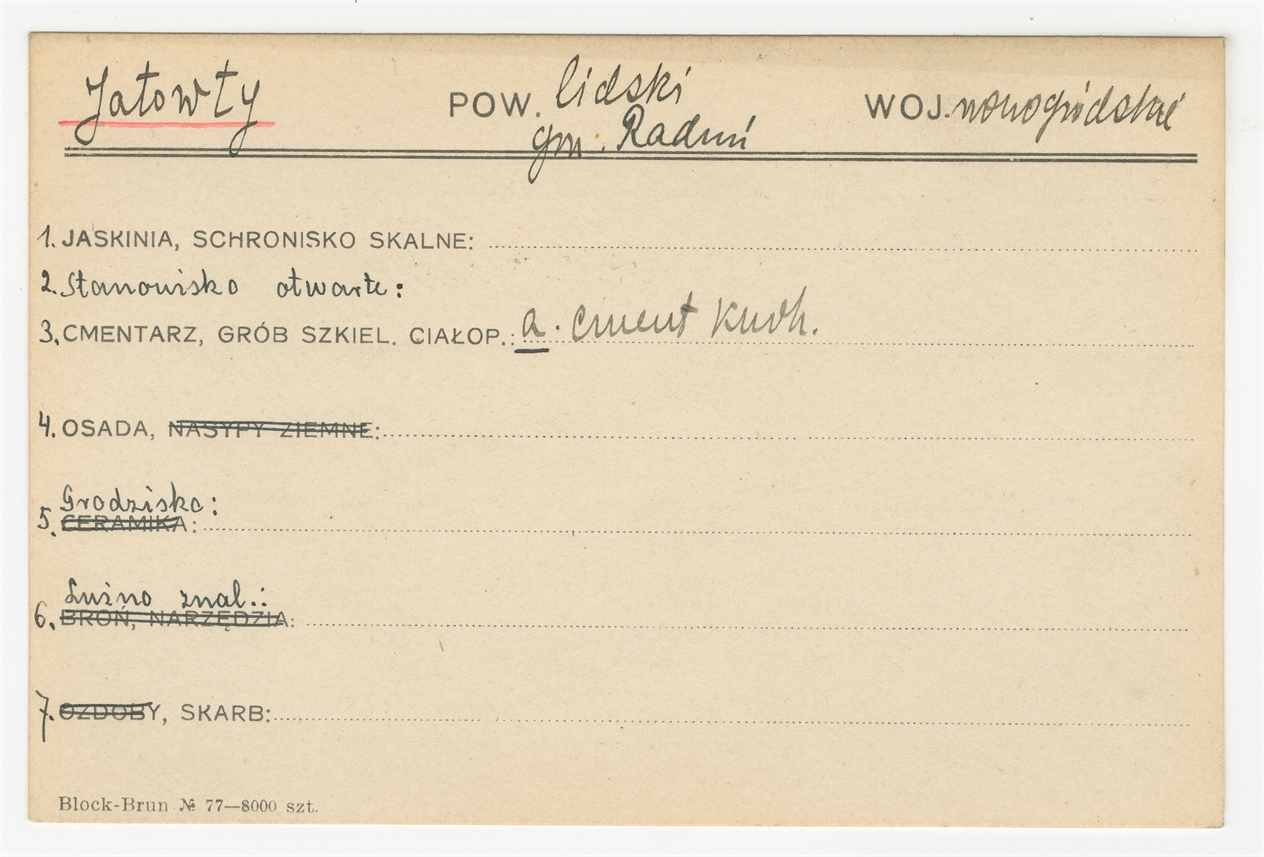 Jatowty POW. lidski WOJ. nowogródzki
gm. Raduń
1. JASKINIA, SCHRONISKO SKALNE:
2. Stanowisko otwarte:
3. CMENTARZ, GRÓB SZKIEL. CIAŁOP.: a. cment kurh.
4. OSADA, NASYPY ZIEMNE:
Grodzisko:
5. CERAMIKA:
Luźno znal.:
6. BROŃ, NARZĘDZIA:
7. OZDOBY, SKARB:
Block-Brun № 77—8000 szt.